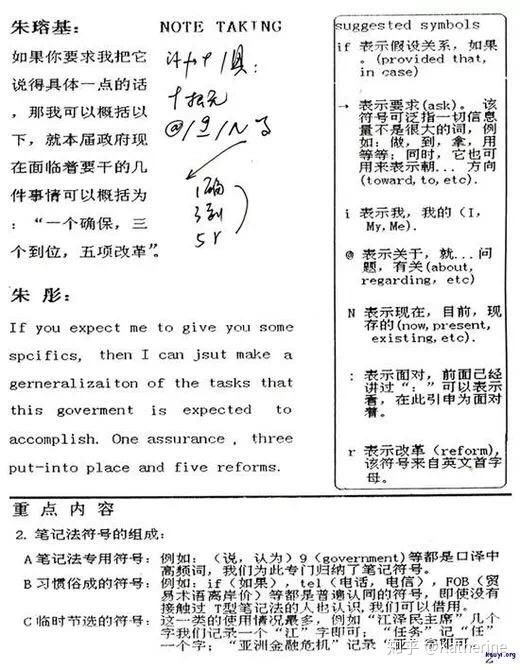 朱瑢基：
如果你要求我把它
说得具体一点的话
，那我可以概括以
下，就本届政府现
在面临着要干的几
件事情可以概括为
：“一个确保，三
个到位，五项改革”。
朱 彤：
If you expect me to give you some
spcifics, then I can jsut make a
gerneralizaiton of the tasks that
this goverment is expected to
accomplish. One assurance, three
put-into place and five reforms.
NOTE TAKING
@/9/N
1确
3到
5r
suggested symbols
if 表示假设关系，如果
。(provided that,
in case)
→ 表示要求(ask)。 该
符号可泛指一切信息
量不是很大的词，例
如：做，到，拿，用
等等；同时，它也可
用来表示朝... 方向
(toward,to, etc).
i 表示我，我的 (I,
My,Me).
@ 表示关于，就...问
题，有关(about,
regarding, etc)
N 表示现在，目前，现
存的(now,present,
existing,etc).
: 表示面对，前面已经
讲过“：”可以表示
看，在此引申为面对
着。
r 表示改革 (reform),
该符号来自英文首字
母。
重 点 内 容
2. 笔记法符号的组成：
A 笔记法专用符号：例如：（说，认为）9（government)等都是口译中
高频词，我们为此专门归纳了笔记符号。
B 习惯俗成的符号：例如：if（如果），tel（电话，电信），FOB（贸
易术语离岸价）等都是普遍认同的符号，即使没有
接触过 T型笔记法的人也认识，我们可以借用。
C 临时节选的符号：这一类的使用情况最多，例如“江泽民主席”几个
字我们记录一个“江”字即可；“任务”记“任”
一个字；“亚洲金融危机”记录“
知乎 @katherine
kguyi.org
2